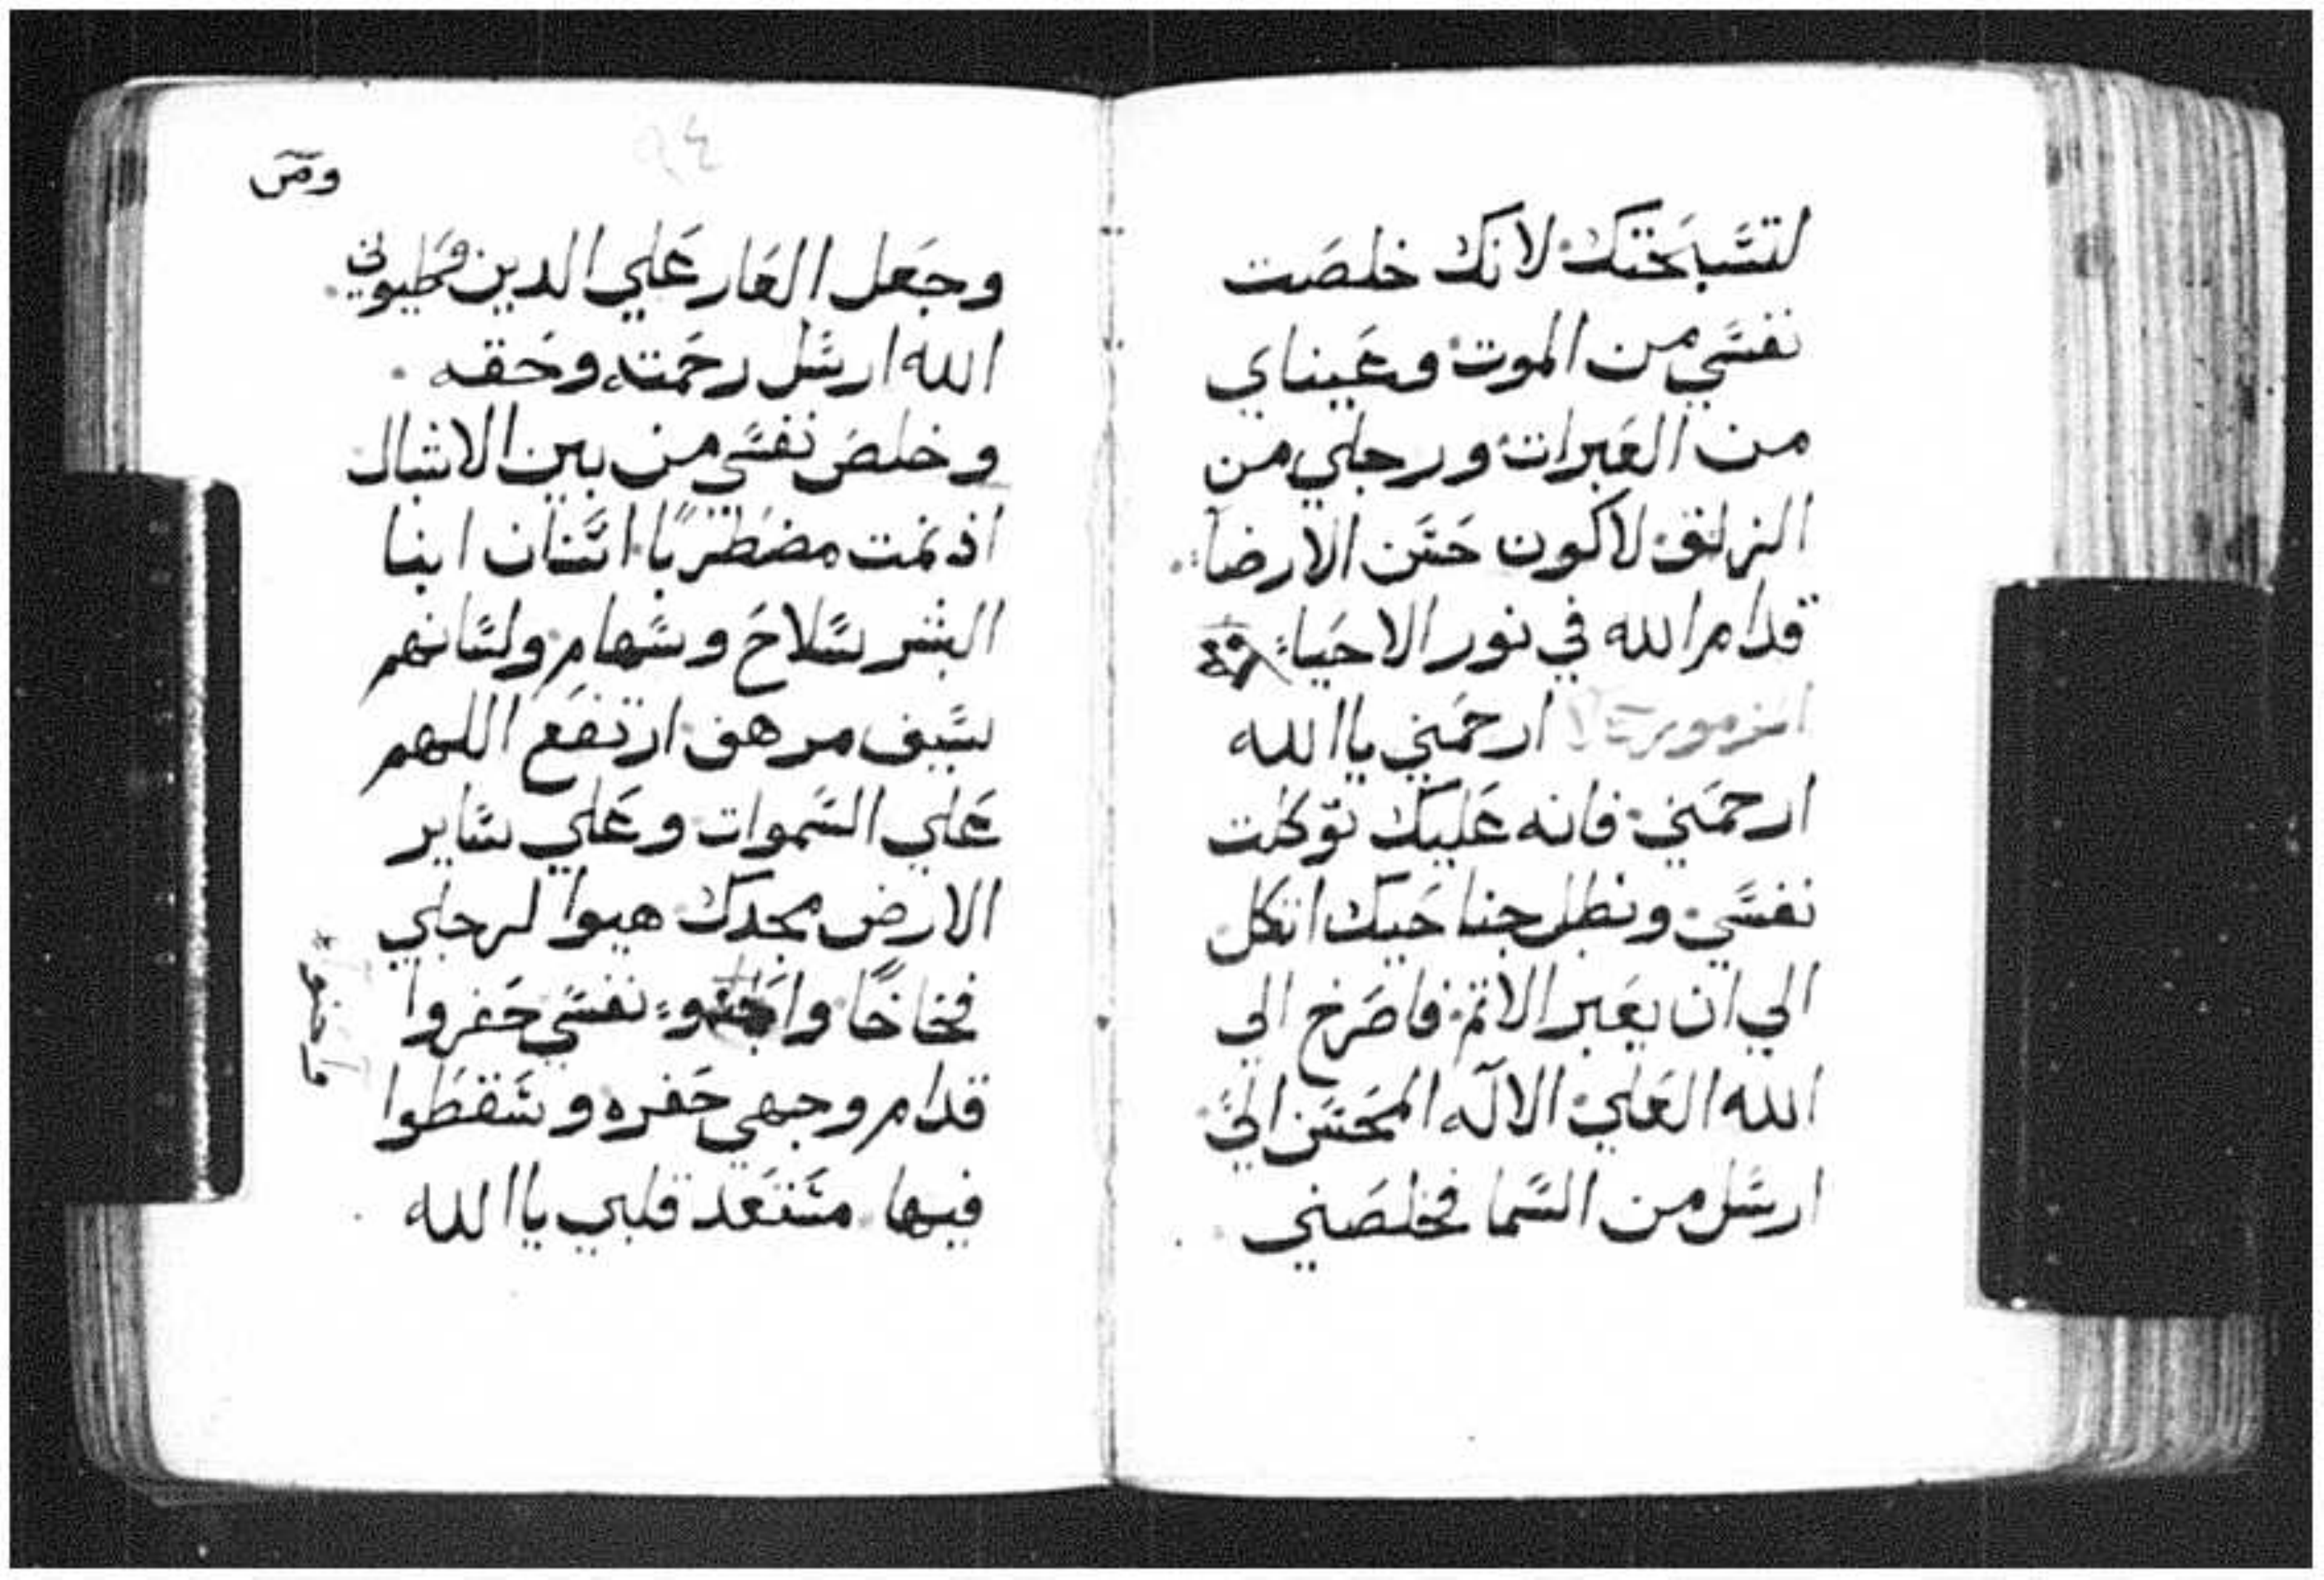 لتسبحتك لانك خلصت
نفسي من الموت وعيناي
من العبرات ورجلي من
الزلق لاكون حسن الارضا
قدام الله في نور الاحياء
المزمور ارحمني ياالله
ارحمني فانه عليك توكلت
نفسي وبظل جناحيك اتكل
الي ان يعبر الاثم فاصرخ الي
الله العلي الاله المحسن الي
ارسل من السما فخلصني
وجعل العار علي الدين
الله ارسل رحمته وحقه
وخلص نفسي من بين الاشبال
اذ نمت مضطربًا اسنان ابنا
البشر سلاح وسهام ولسانهم
سيف مرهف ارتفع اللهم
علي السموات وعلي ساير
الارض مجدك هيوا لرجلي
فخاخًا نفسي حفروا
قدام وجهي حفره وسقطوا
فيها مستعد قلبي ياالله